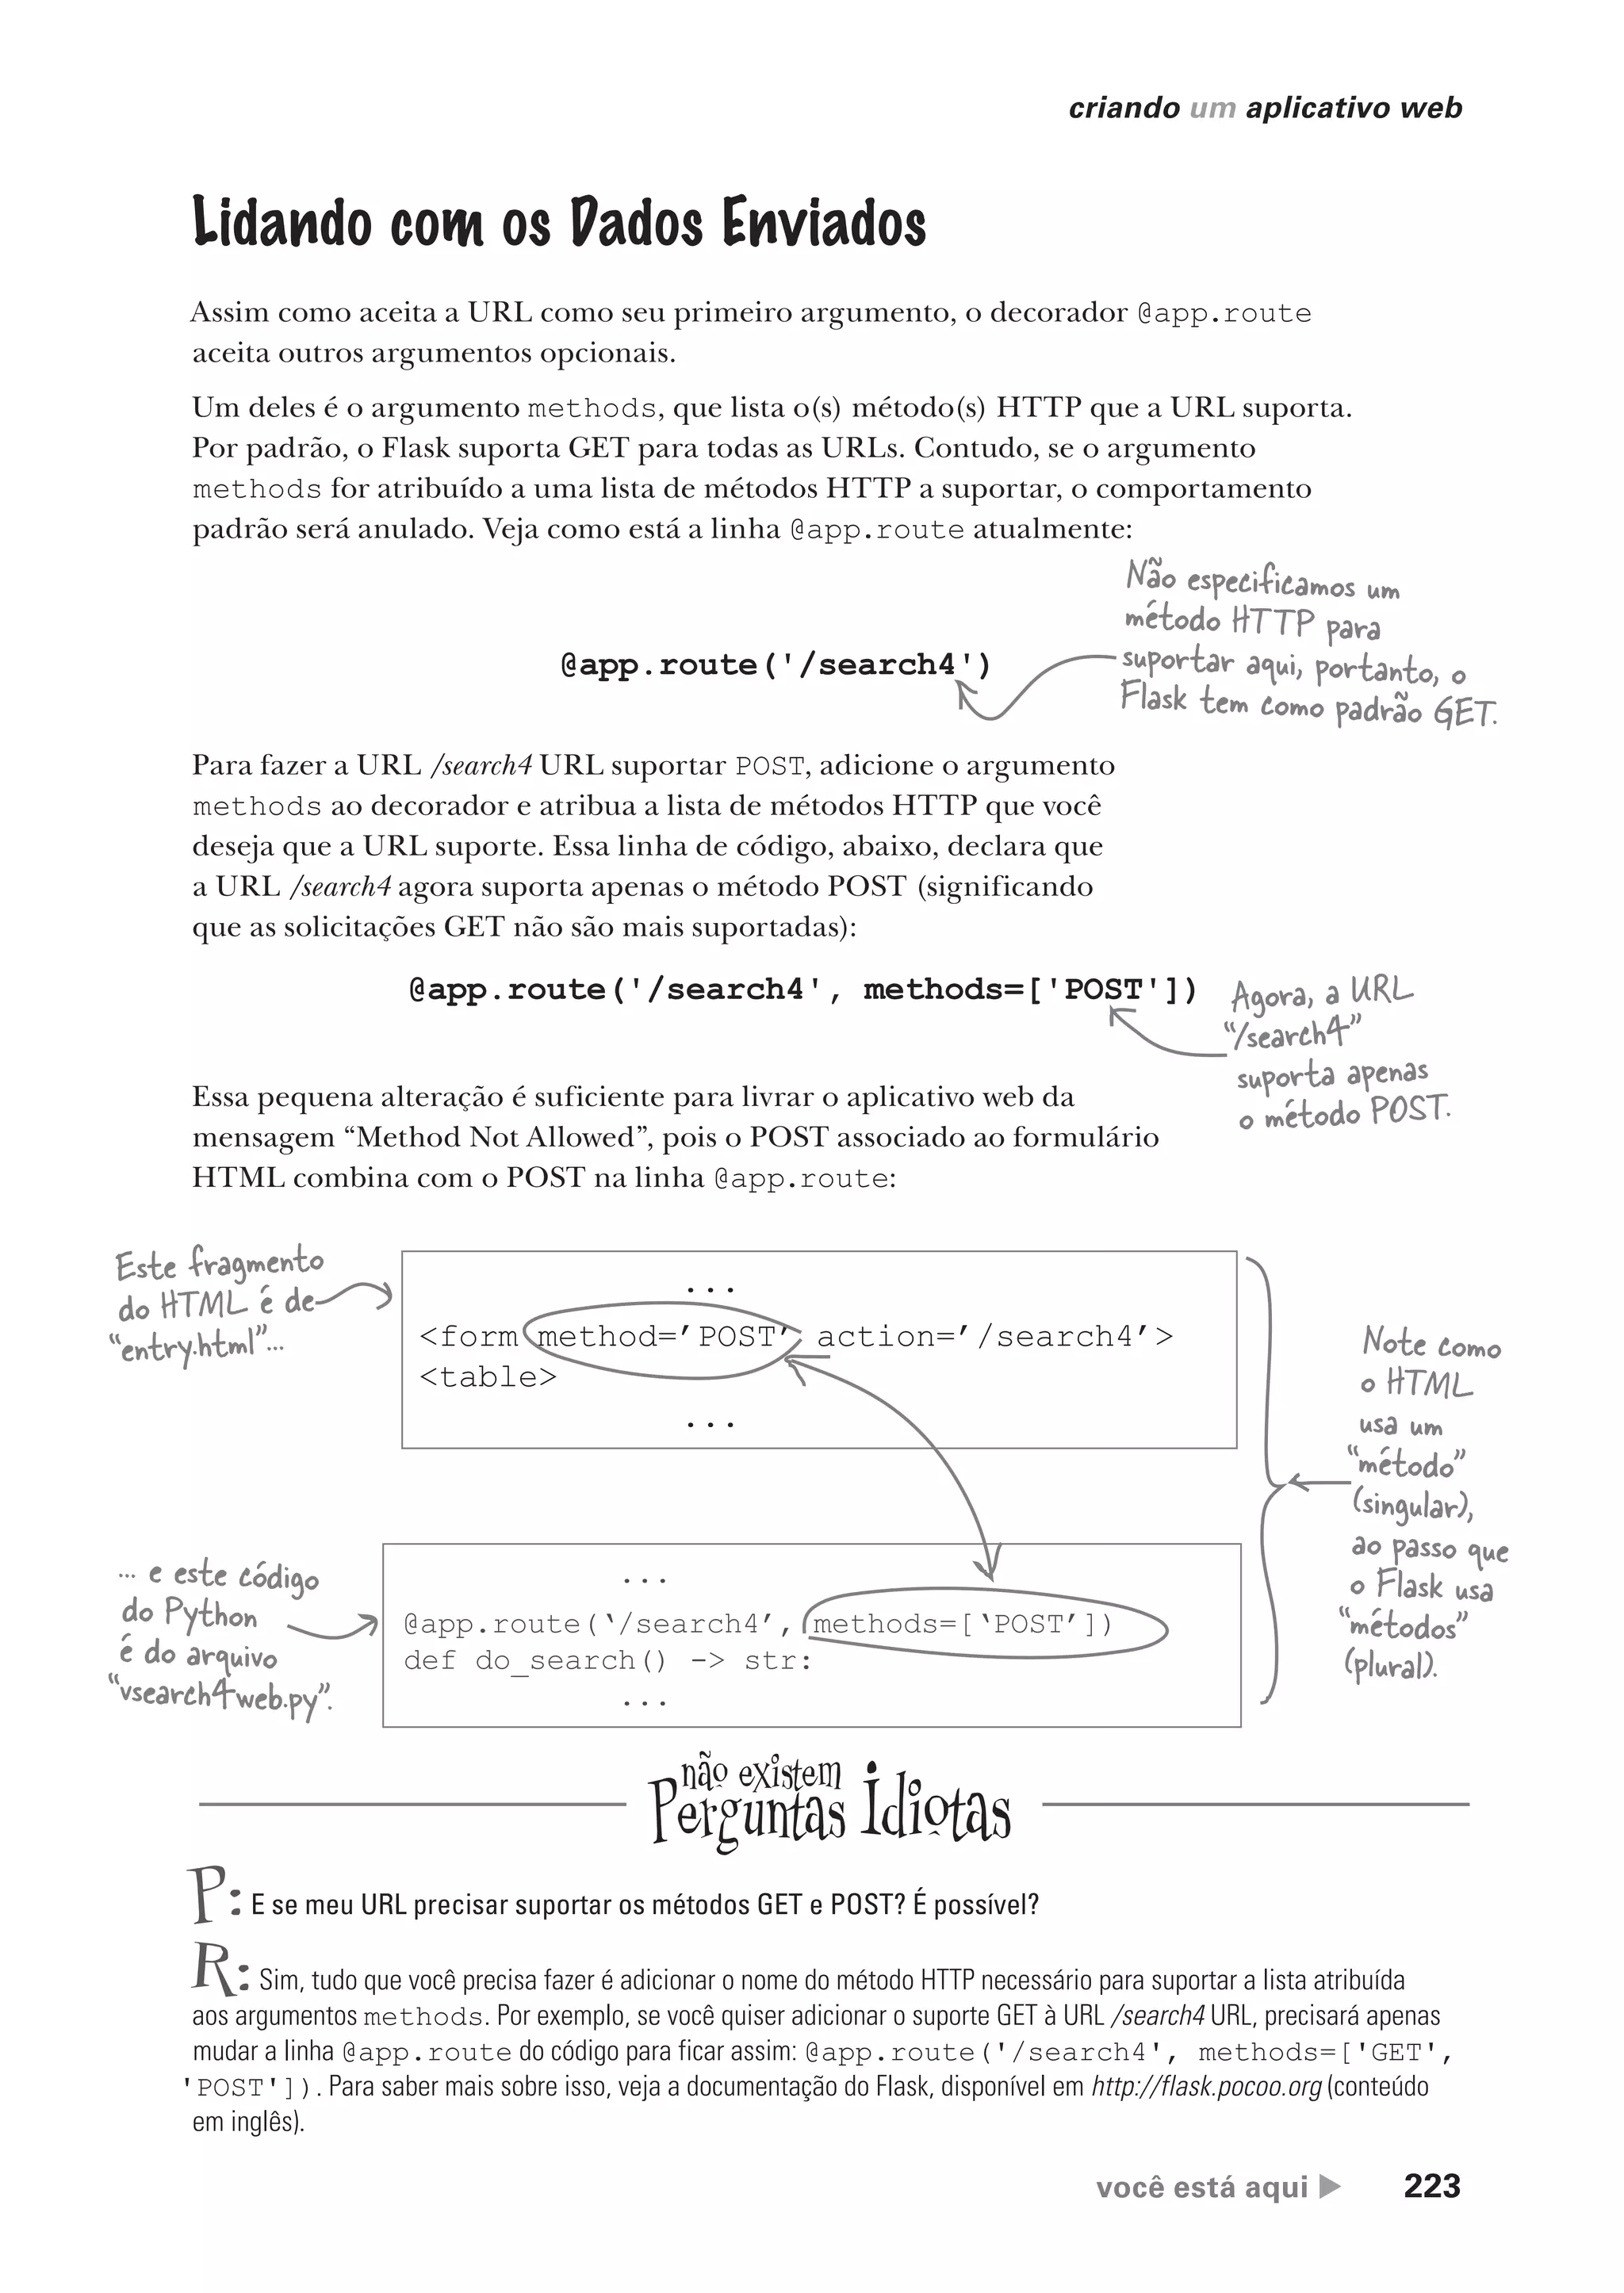 criando um aplicativo web
Lidando com os Dados Enviados
Assim como aceita a URL como seu primeiro argumento, o decorador @app.route
aceita outros argumentos opcionais.
Um deles é o argumento methods, que lista o(s) método(s) HTTP que a URL suporta.
Por padrão, o Flask suporta GET para todas as URLs. Contudo, se o argumento
methods for atribuído a uma lista de métodos HTTP a suportar, o comportamento
padrão será anulado. Veja como está a linha @app.route atualmente:
Não especificamos um
método HTTP para
suportar aqui, portanto, o
Flask tem como padrão GET.
@app.route('/search4')
Para fazer a URL /search4 URL suportar POST, adicione o argumento
methods ao decorador e atribua a lista de métodos HTTP que você
deseja que a URL suporte. Essa linha de código, abaixo, declara que
a URL /search4 agora suporta apenas o método POST (significando
que as solicitações GET não são mais suportadas):
@app.route('/search4', methods=['POST'])
Agora, a URL
“/search4”
suporta apenas
o método POST.
Essa pequena alteração é suficiente para livrar o aplicativo web da
mensagem “Method Not Allowed”, pois o POST associado ao formulário
HTML combina com o POST na linha @app.route:
Este fragmento
do HTML é de
“entry.html”...
...
<form method=’POST’ action=’/search4’>
<table>
...
Note como
o HTML
usa um
“método”
(singular),
ao passo que
o Flask usa
“métodos”
(plural).
... e este código
do Python
é do arquivo
“vsearch4web.py”.
...
@app.route(‘/search4’, methods=[‘POST’])
def do_search() -> str:
...
não existem
Perguntas Idiotas
P: E se meu URL precisar suportar os métodos GET e POST? É possível?
R: Sim, tudo que você precisa fazer é adicionar o nome do método HTTP necessário para suportar a lista atribuída
aos argumentos methods. Por exemplo, se você quiser adicionar o suporte GET à URL /search4 URL, precisará apenas
mudar a linha @app.route do código para ficar assim: @app.route('/search4', methods=['GET',
'POST']). Para saber mais sobre isso, veja a documentação do Flask, disponível em http://flask.pocoo.org (conteúdo
em inglês).
você está aqui ▶ 223